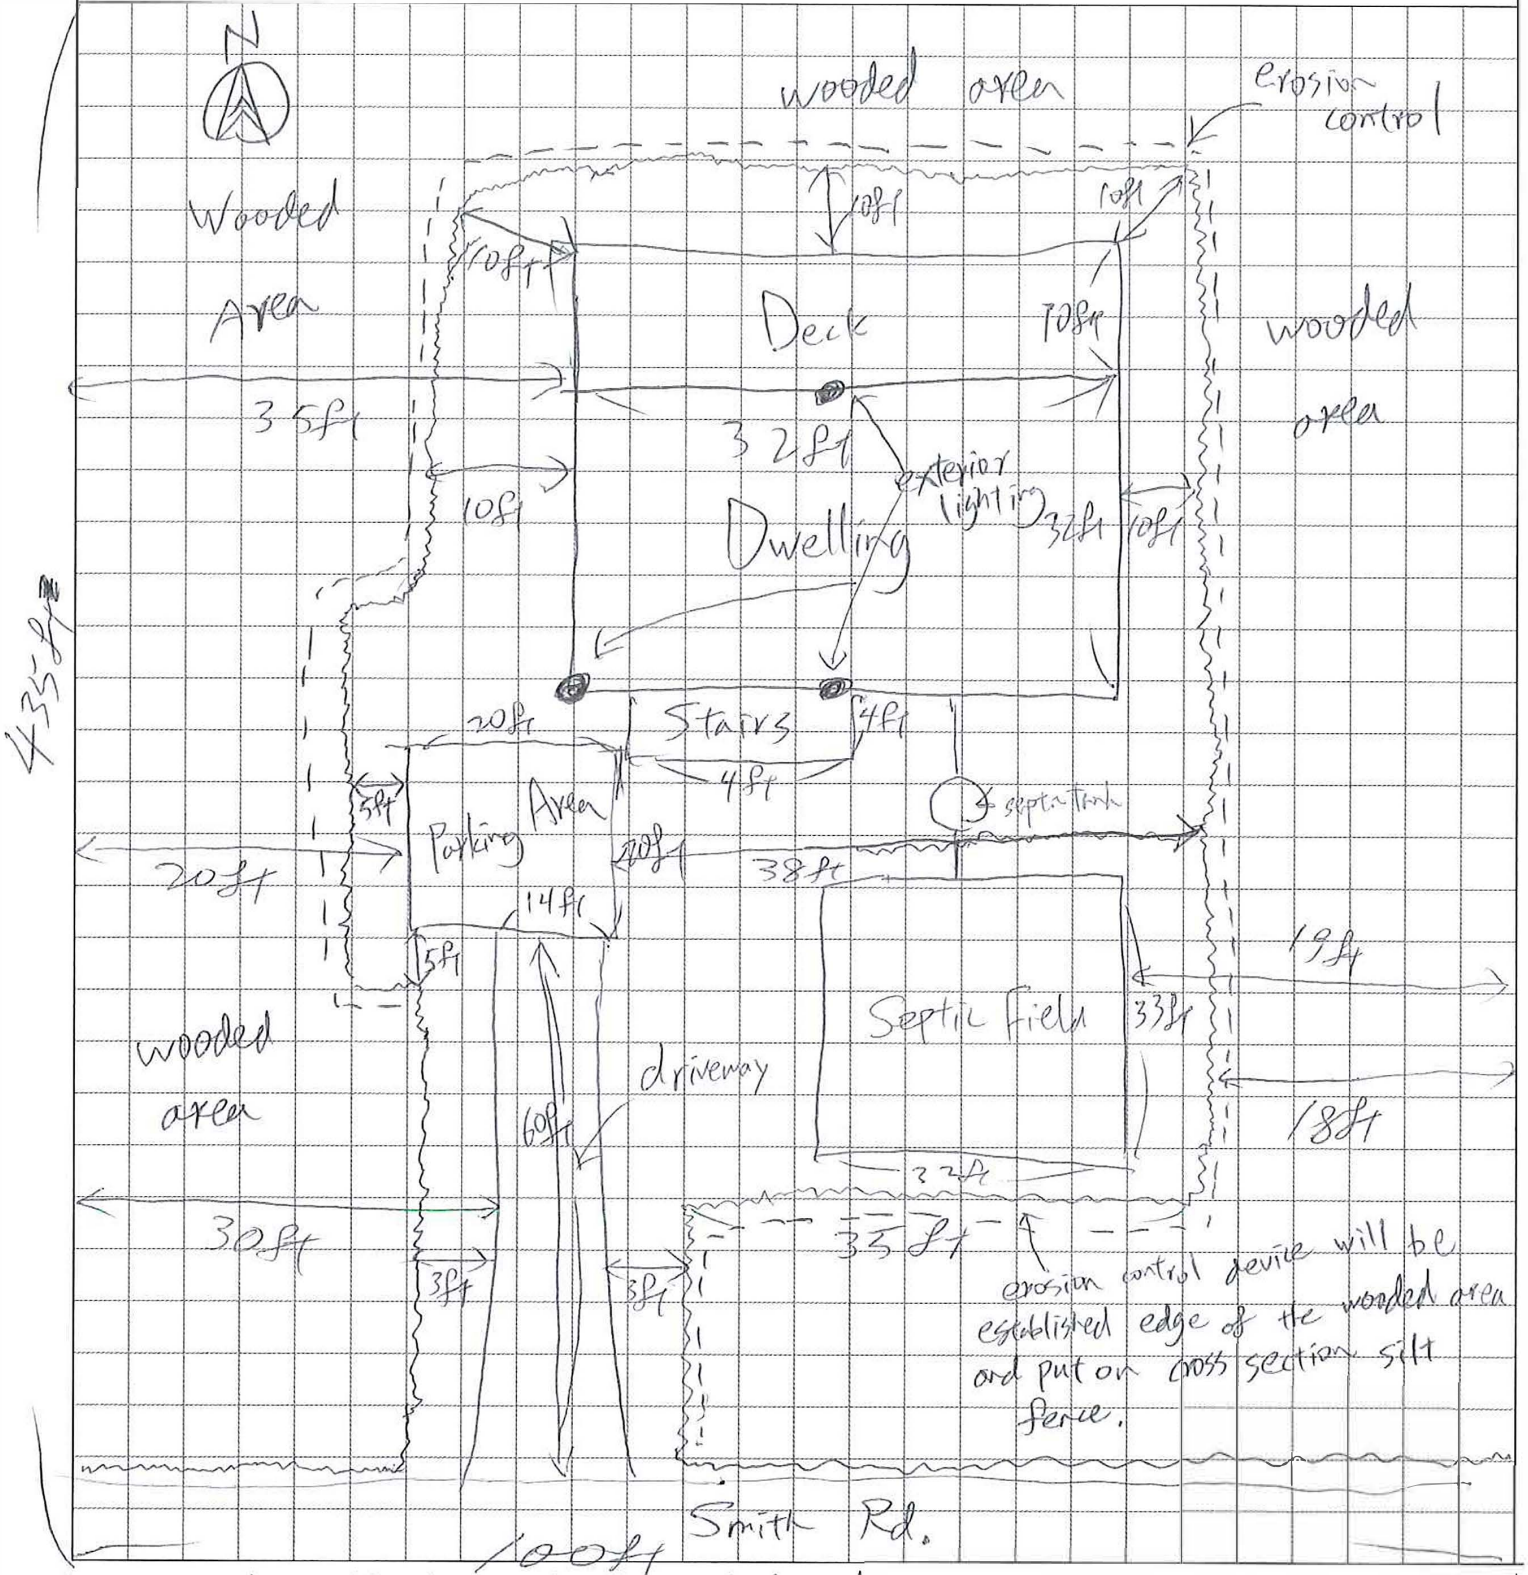 N
wooded area
erosion
control
Wooded
Area
10ft
10ft
10ft
Deck
10ft
wooded
area
35ft
32ft
exterior
lighting
10ft
Dwelling
32ft
10ft
435ft
20ft
Stairs
4ft
4ft
5ft
Parking Area
septic Tank
20ft
20ft
38ft
14ft
5ft
19ft
Septic Field
33ft
wooded
area
driveway
60ft
18ft
32ft
30ft
35ft
3ft
3ft
erosion control device will be
established edge of the wooded area
and put on cross section silt
fence.
Smith Rd.
100ft